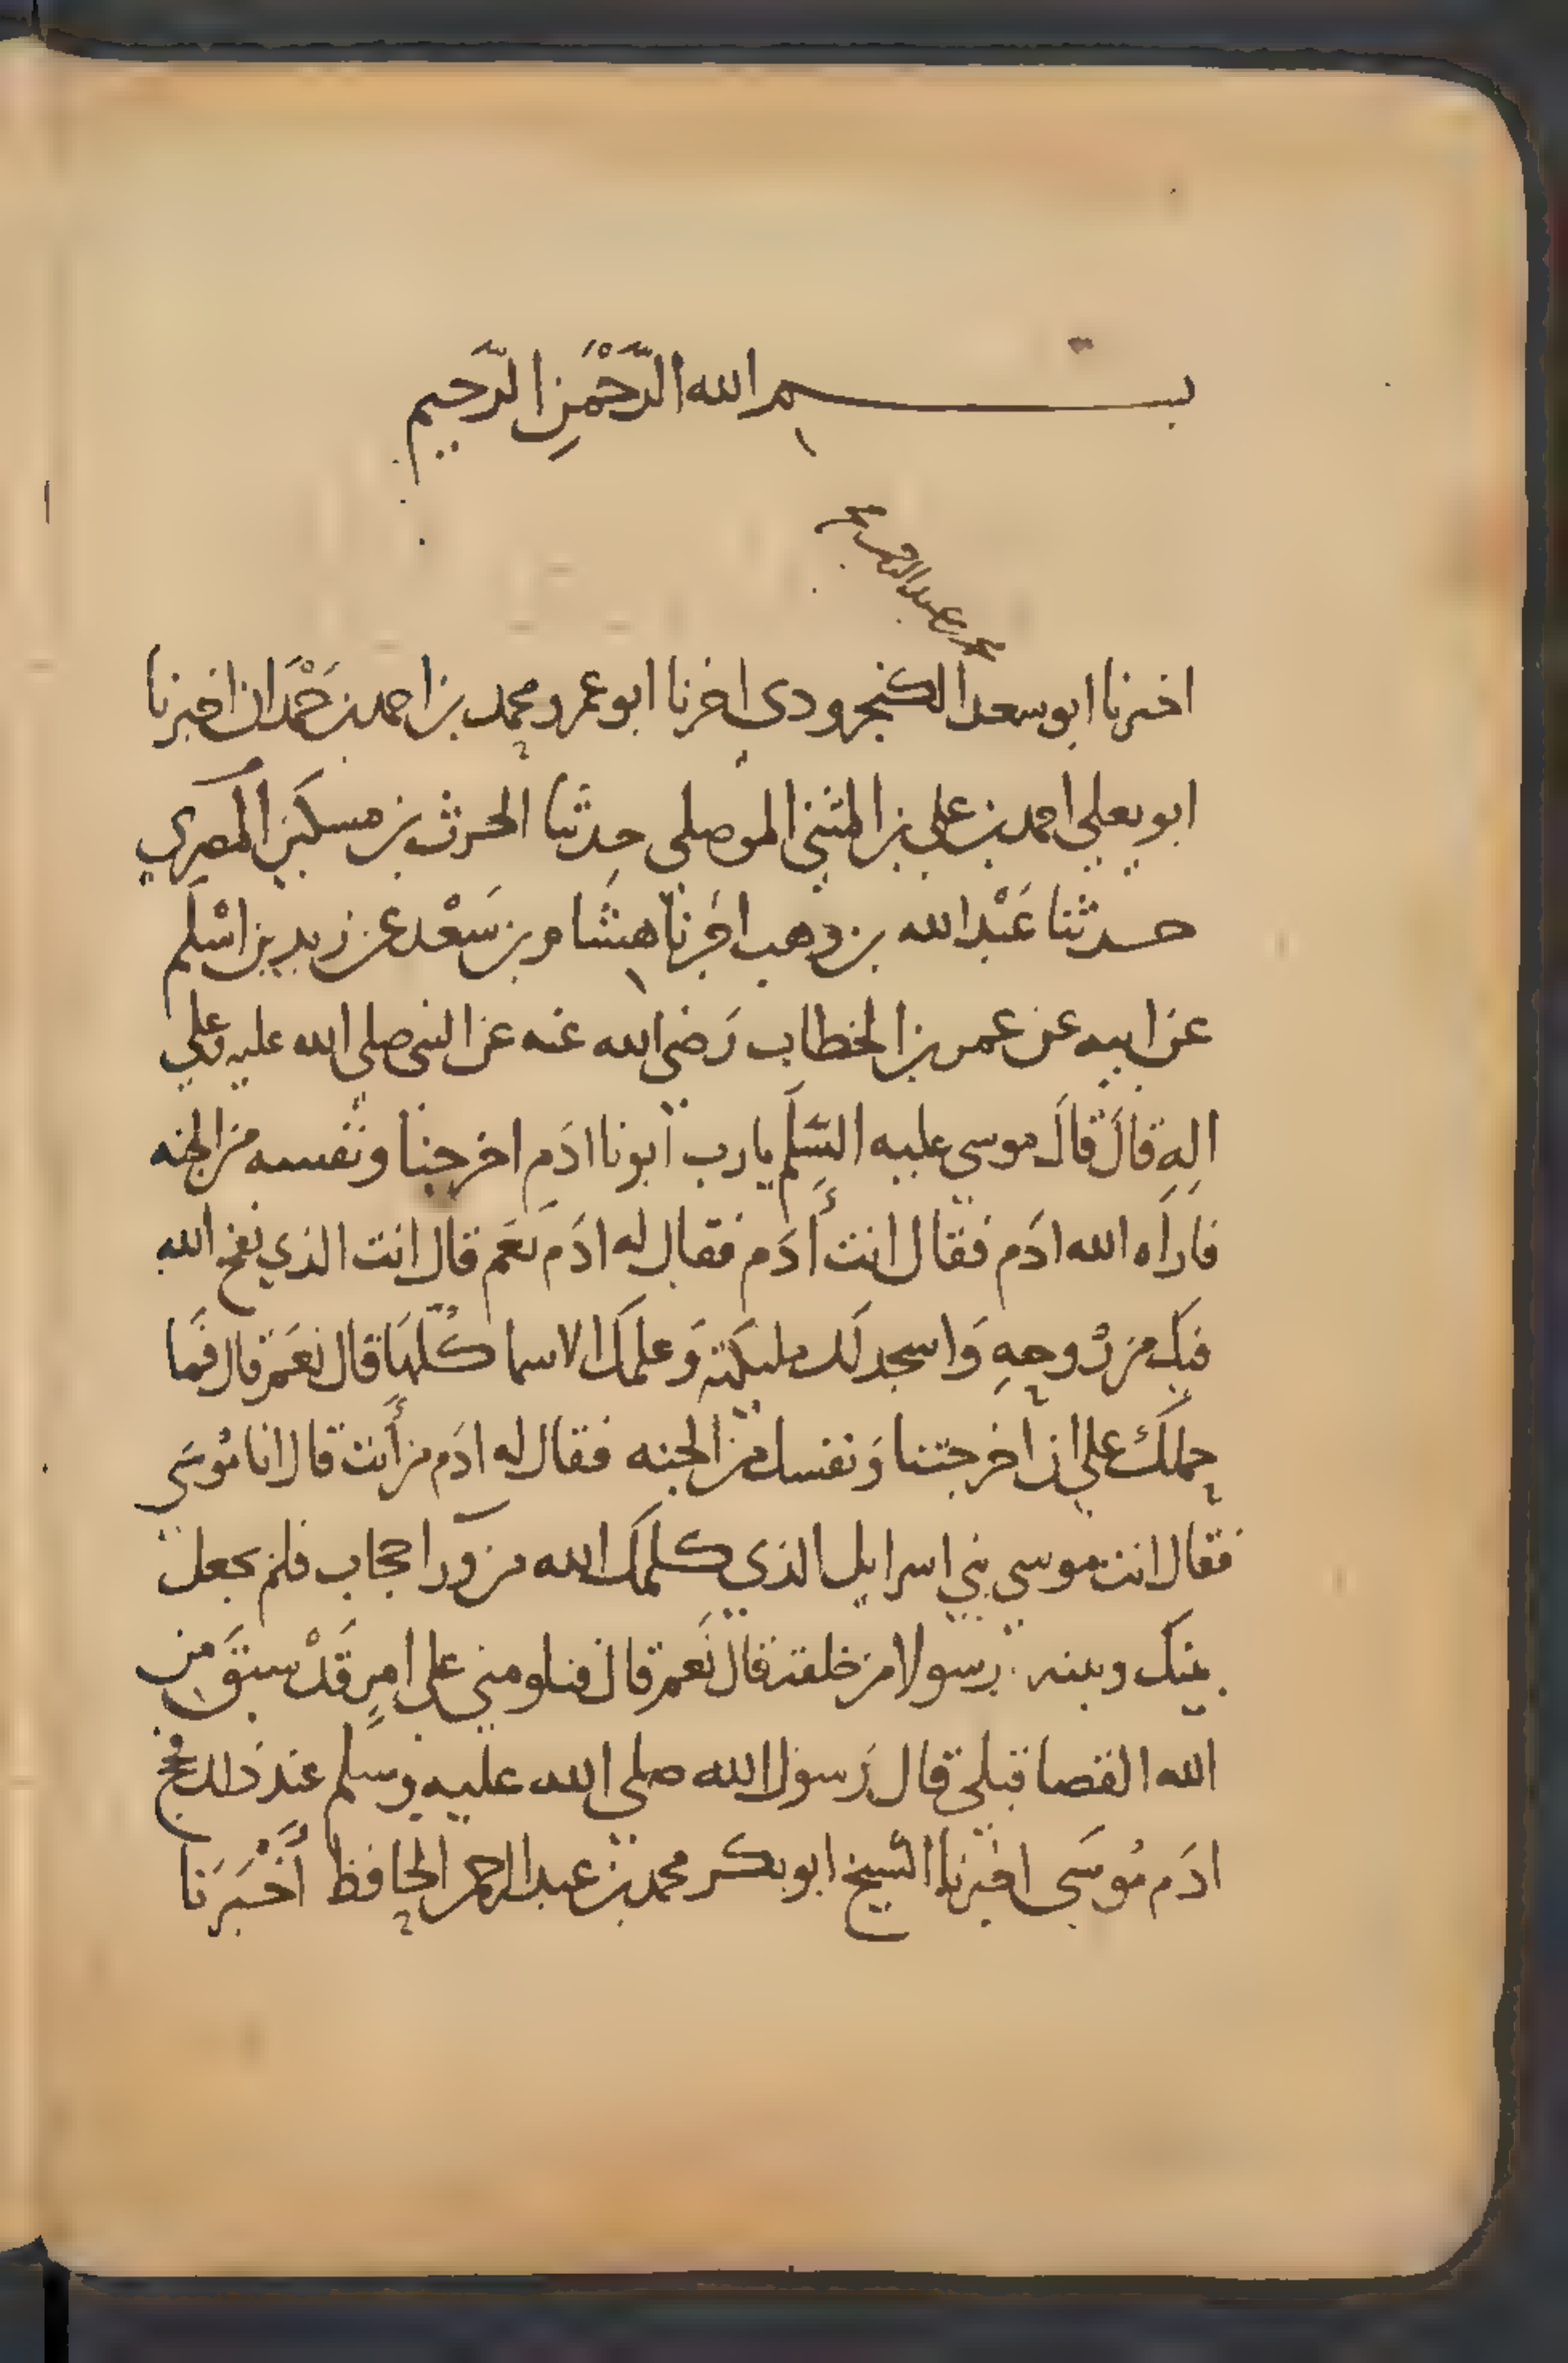 بسم الله الرَّحْمَنِ الرَّحيم
محمد بن عبد الرحمن
اخبرنا ابو سعد الكنجرودي اخبرنا ابو عمرو محمد بن احمد بن حَمْدَان اخبرنا
ابو يعلي احمد بن علي بن المثني الموصلي حدثنا الحرث بن مسكين المصري
حدثنا عَبْد الله بن وهب اخبرنا هشام بن سَعْد عن زيد بن اسْلَم
عن ابيه عن عمر بن الخطاب رَضي الله عنه عن النبي صلي الله عليه وعلي
الِهِ قالَ قالَ موسي عليه السَّلم يا رب ابونا ادَم اخرجنا ونفسه من الجنه
فاراه الله ادَم فقال انت أادَم فقال له ادَم نَعَم قال انت الذي نفخ الله
فيك من رُوحِهِ وَاسجد لَك مليكته وَعلمك الاسما كُلهَا قال نَعَم قال فَمَا
حملك علي ان اخرجتنا وَنفسك من الجنه فقال له ادَم من أنت قال انا مُوسَي
فقال انت موسي نبي اسرايل الذي كلمك الله من ورا حجاب فلم يجعل
بينك وبينه رسولا من خلقه قال نَعَم قال فتلومني علي امرٍ قَدْ سبقَ من
الله القضا قبلي قال رَسول الله صلي الله عليه وسلم عند ذلك فحج
ادَم مُوسَي اخبرنا الشيخ ابو بكر محمد بن عبد الرحمن الحافظ أَخْبَرَنا